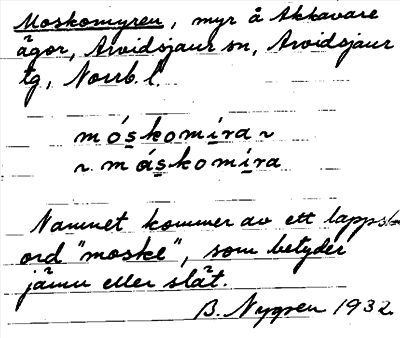 Moskomyren, myr å Akkavare
ägor, Arvidsjaur sn, Arvidsjaur
tg, Norrb. l.
móskomíra ~
~ máskomíra
Namnet kommer av ett lappsk
ord "moske", som betyder
jämn eller slät.
B. Nygren 1932.